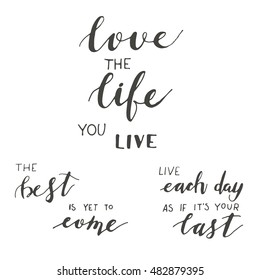 love
THE
life
YOU LIVE
THE
best
IS YET TO
come
LIVE
each day
AS IF IT'S YOUR
last
shutterstock
482879395